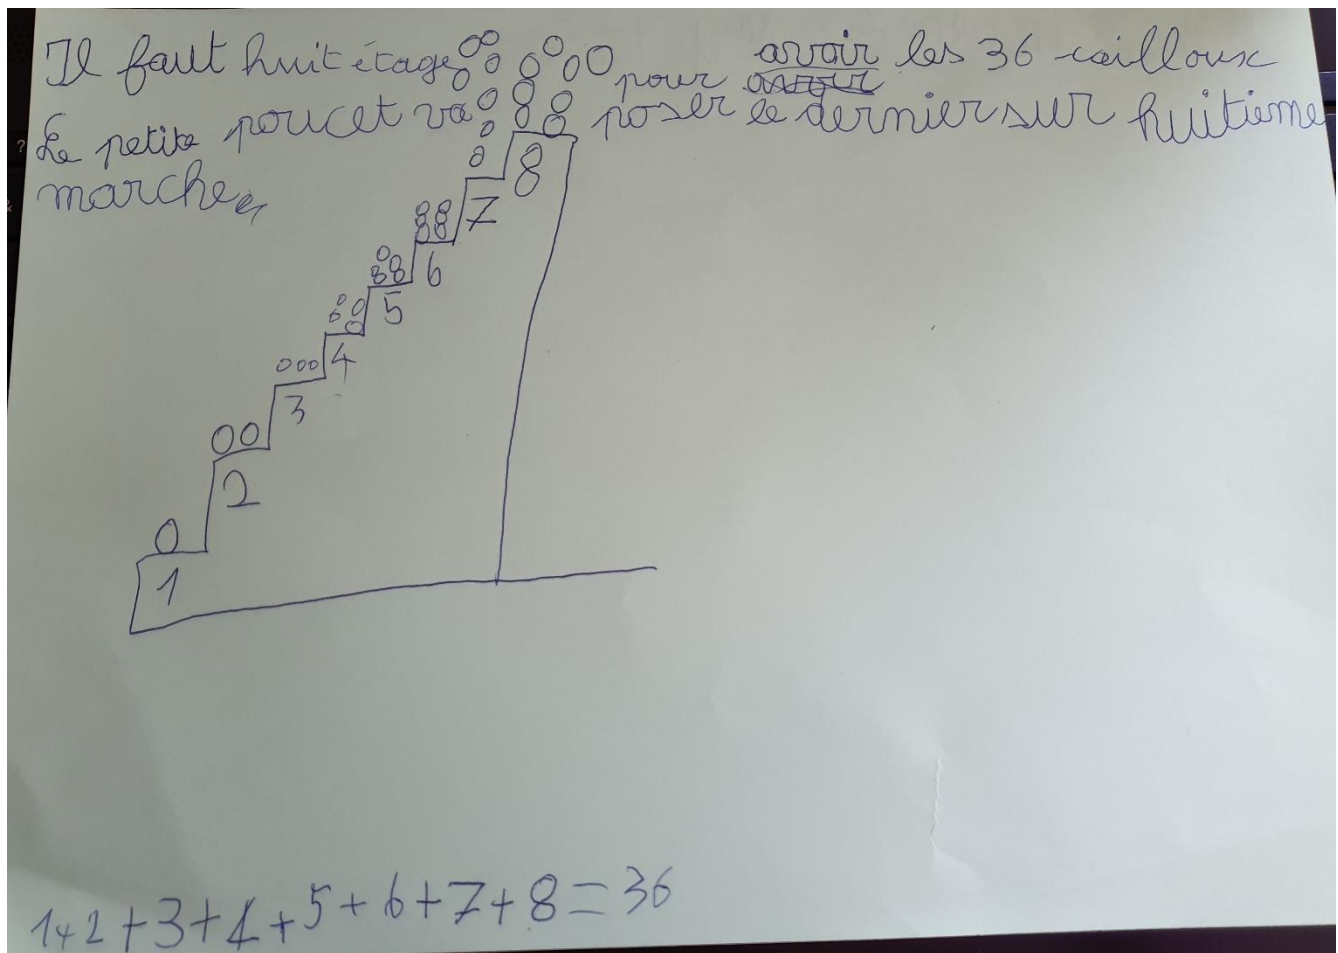 Il faut huit étage pour avoir les 36 cailloux
Le petite poucet va poser le dernier sur huitième
marche
8
7
6
5
4
3
2
1
1+2+3+4+5+6+7+8=36